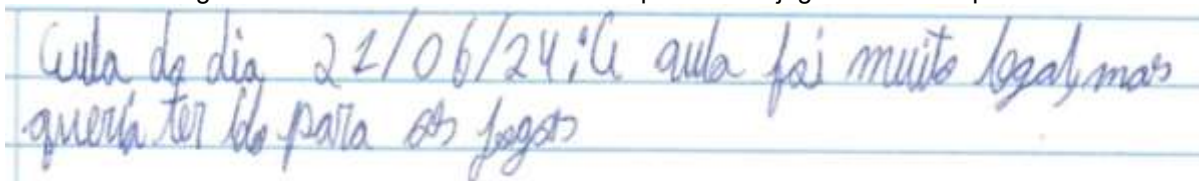 Aula do dia 21/06/24: A aula foi muito legal, mas
queria ter ido para os jogos